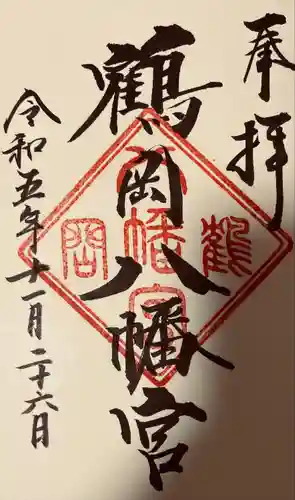 奉拝
鶴岡八幡宮
八幡宮
鶴
岡
令和五年十一月二十六日